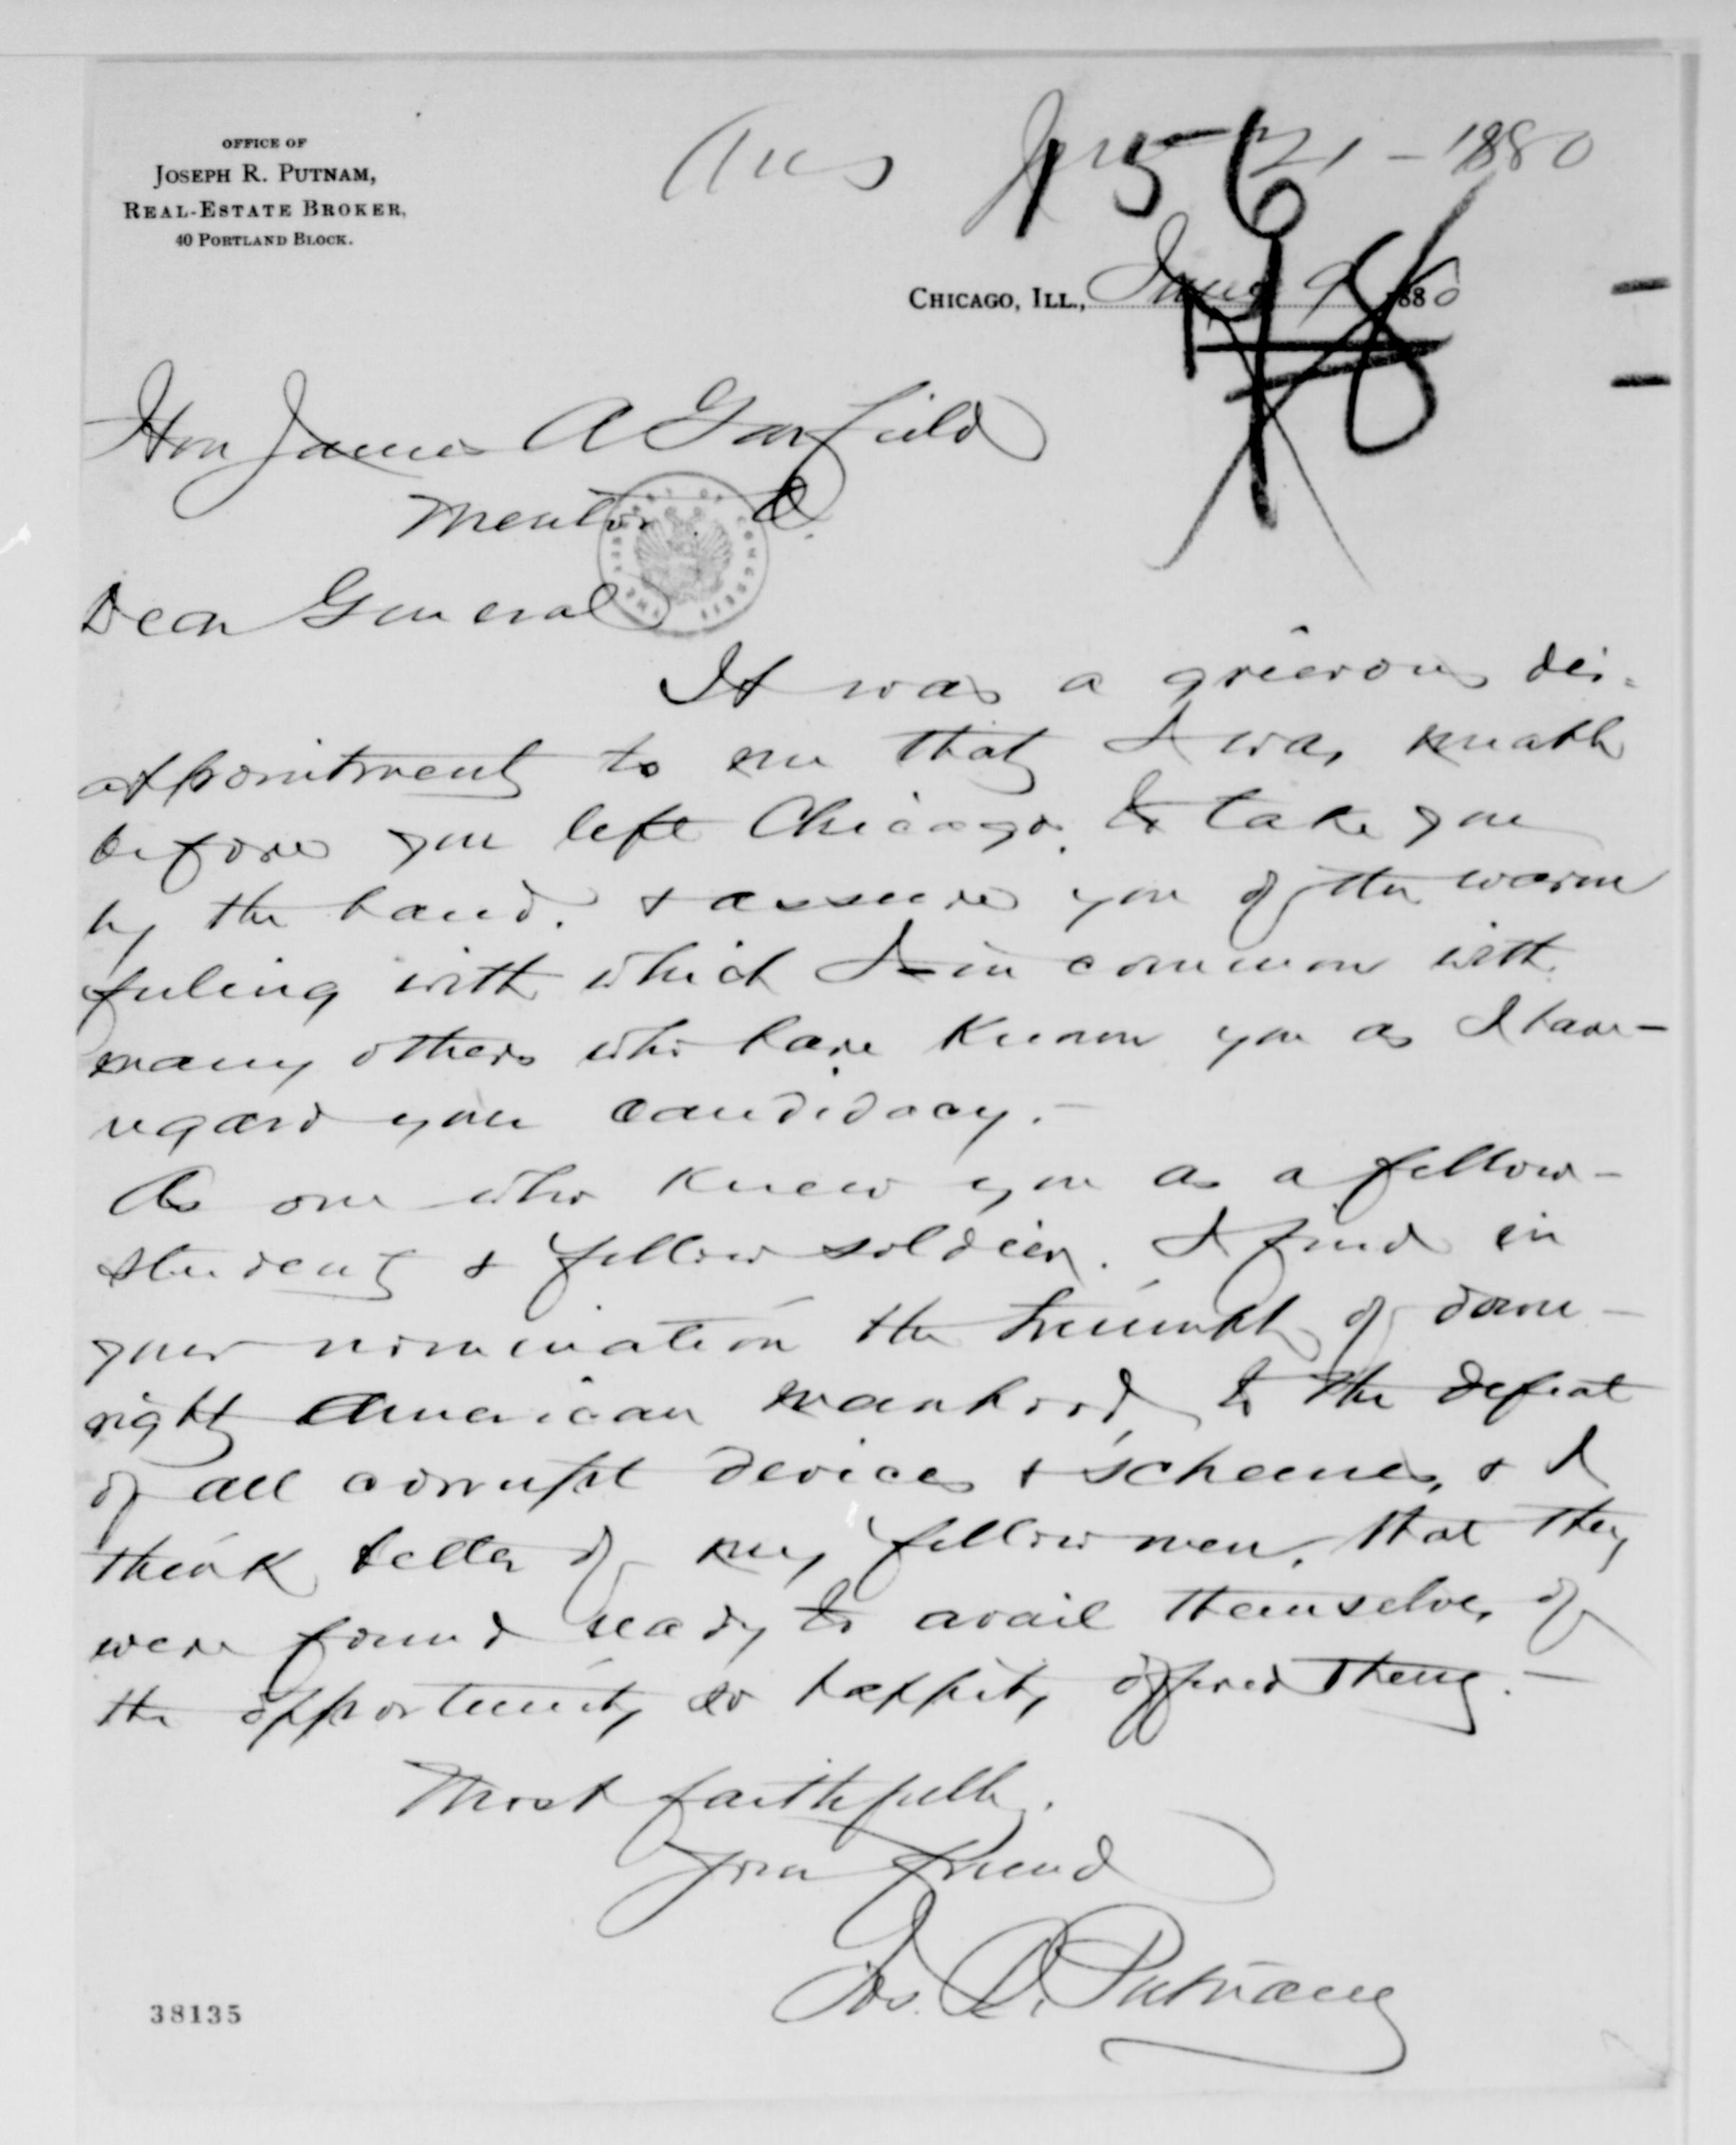 OFFICE OF
JOSEPH R. PUTNAM,
REAL-ESTATE BROKER,
40 PORTLAND BLOCK.
Ans 21 - 1880
156
CHICAGO, ILL., June 9 1880
Hon James A Garfield
Mentor. O.
Dear General
It was a grievous dis-
appointment to me that I was unable
before you left Chicago. to take you
by the hand. & assure you of the warm
feeling with which I in common with
many others who have known you as I have -
regard your candidacy. -
As one who knew you as a fellow-
student & fellow soldier. I find in
your nomination the triumph of down-
right American manhood, to the defeat
of all corrupt devices & schemes, & I
think better of my fellow men. that they
were found ready to avail themselves of
the opportunity so happily offered them. -
Most faithfully.
Your friend
Jos. R. Putnam
38135
THE LIBRARY OF CONGRESS